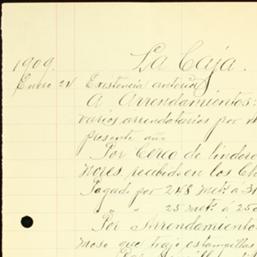 1909. La Caja.
Enero 24 Existencia anterior
A Arrendamientos:
varios arrendatarios por
presente año
Por Cerco de lindero
Flores, recibido en los
Pagado por 248 metr. a 31
" " 25 metr. á 25
Por Arrendamiento
moso que trajo estampillas